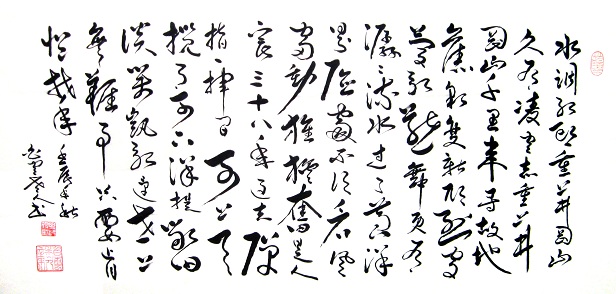 水调歌头重上井冈山
久有凌云志重上井
冈山千里来寻故地
旧貌变新颜到处
莺歌燕舞更有
潺潺流水过了黄洋
界险处不须看风
雷动旌旗奋是人
寰三十八年过去弹
指一挥间可上九天
揽月可下五洋捉鳖
谈笑凯歌还世上
无难事只要肯
登攀
壬辰年秋